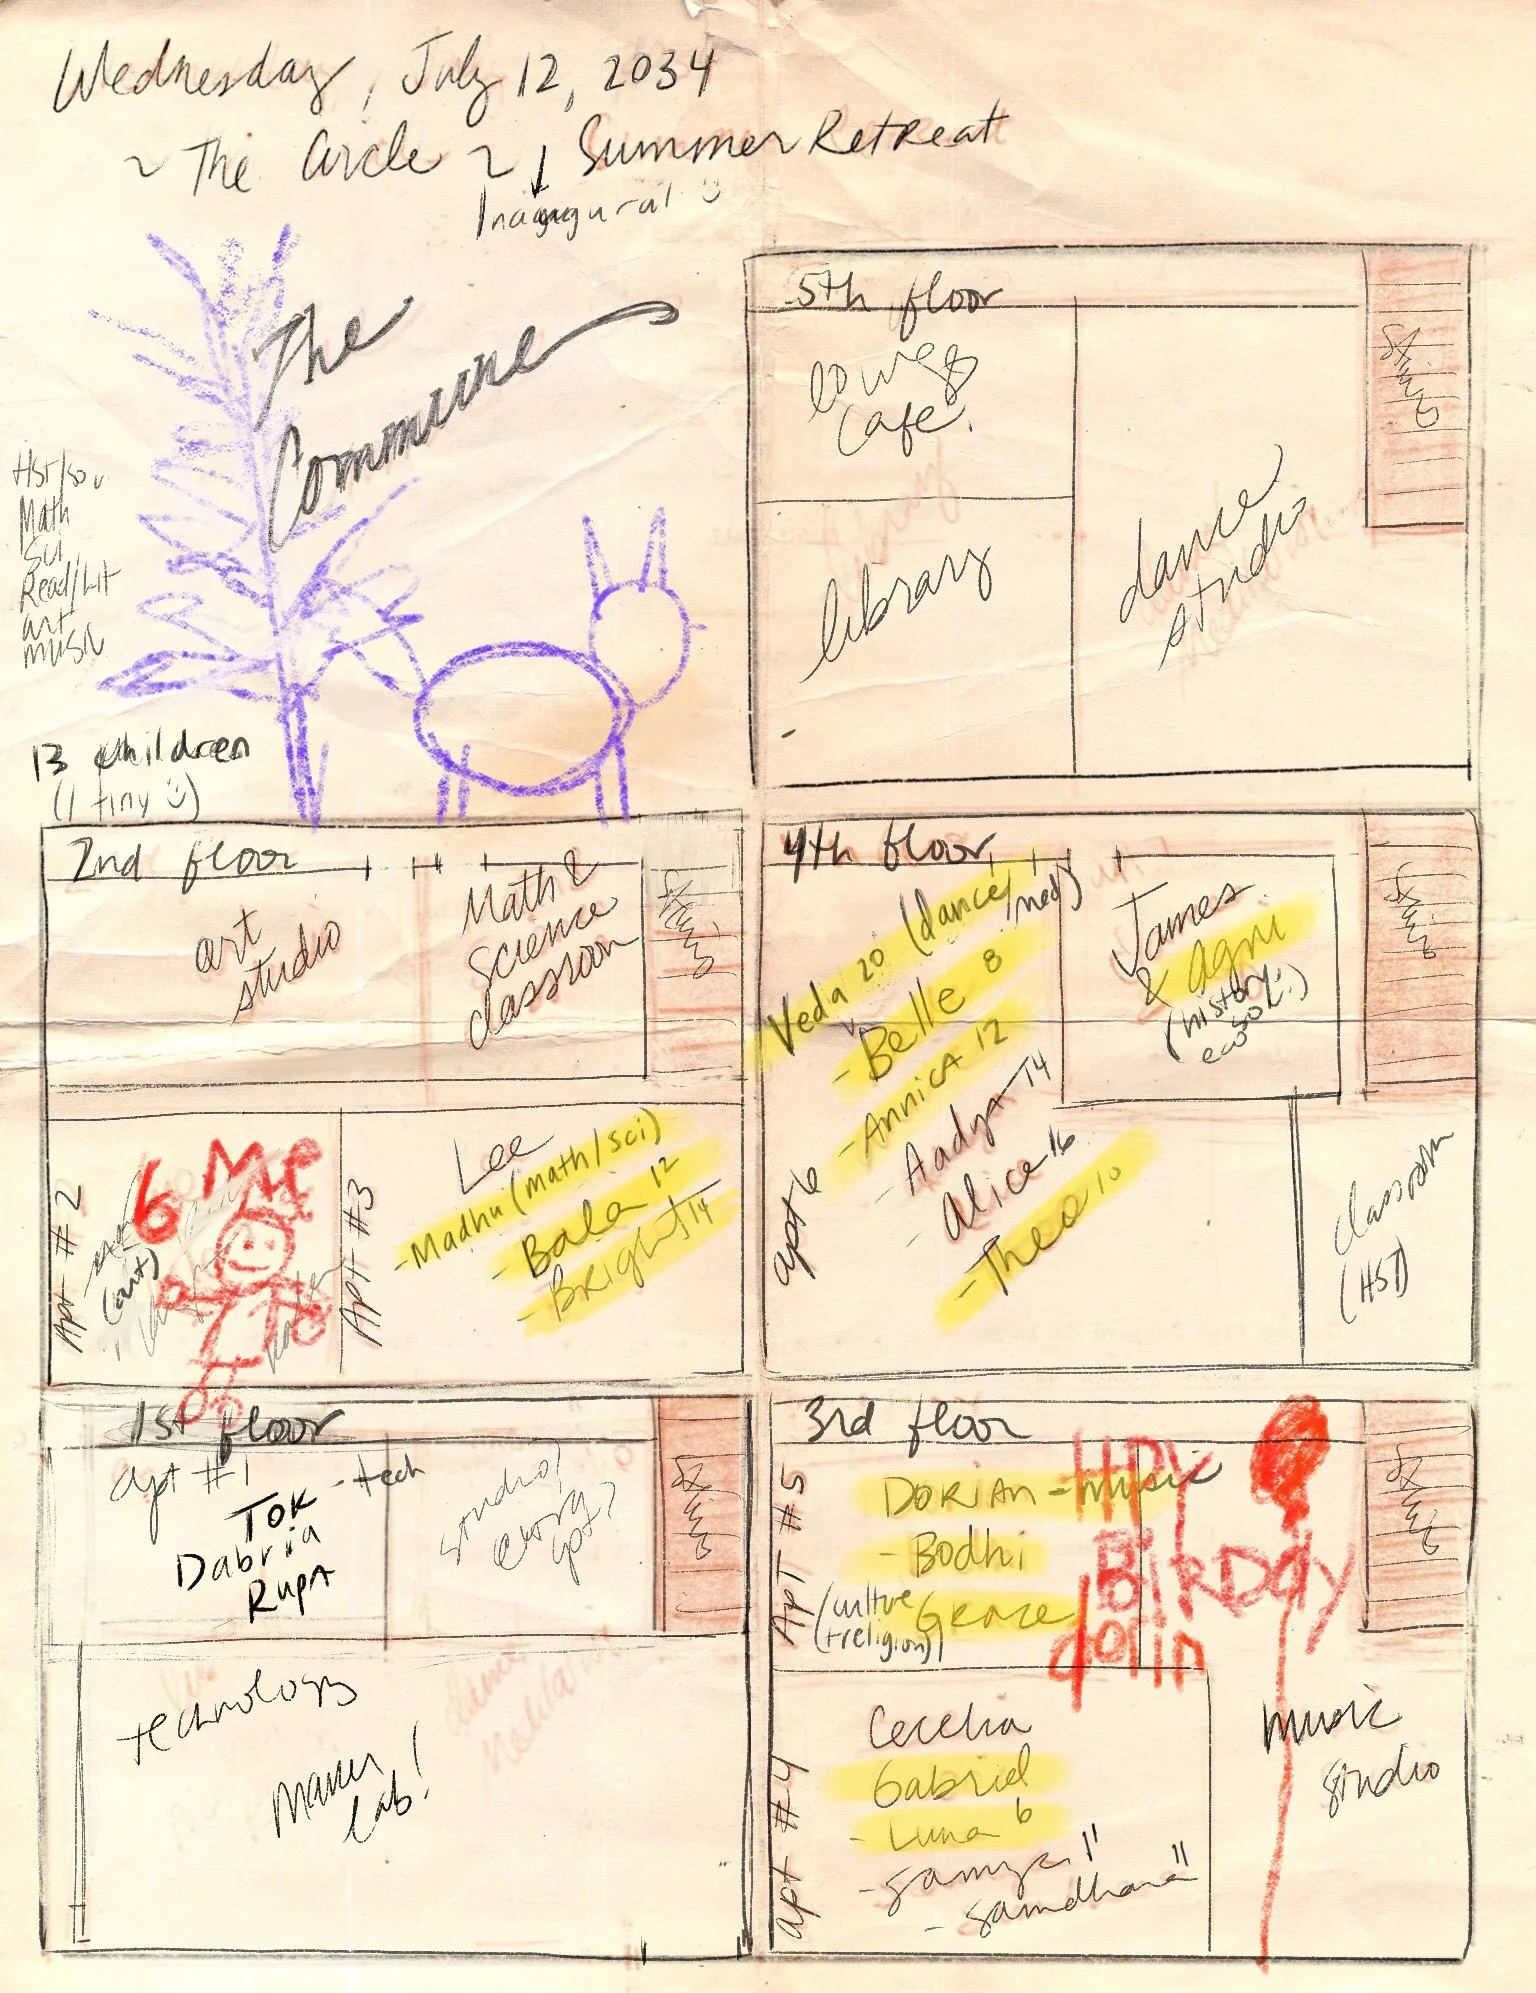 Wednesday, July 12, 2034
~ The Circle ~ Summer Retreat
Inaugural
The
Commune
Hst/so
Math
Sci
Read/Lit
art
music
13 children
(1 tiny ☺)
5th floor
Cafe
library
dance
studio
stairs
2nd floor
art
studio
Math &
Science
classroom
stairs
Apt #2
(art)
6 Me
Apt #3
Lee
-Madhu (math/sci)
- Bala 12
- Bright 14
4th floor
Veda 20 (dance/med)
- Belle 8
- Annica 12
- Aadya 14
- Alice 16
- Theo 10
apt 6
James
& Agni
(history
ecosol.)
stairs
classroom
(HST)
1st floor
apt #1
Tok - tech
Dabria
Rupa
studio?
extra
apt?
stairs
technology
Maker
Lab!
3rd floor
Apt #5
Dorian - music
- Bodhi
Grace
(culture
+religion)
HPY
BirDdy
dorin
stairs
apt #4
Cecelia
Gabriel
- Luna 6
- Samya 11
- Samdhana 11
music
studio